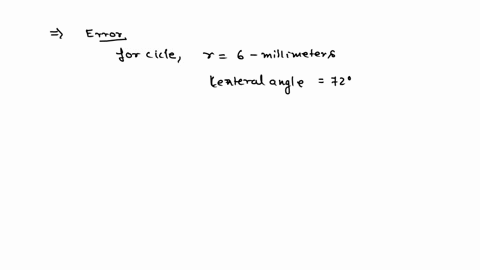 ⇒ Error
for cicle, r = 6 - millimeters
Centeral angle = 72°